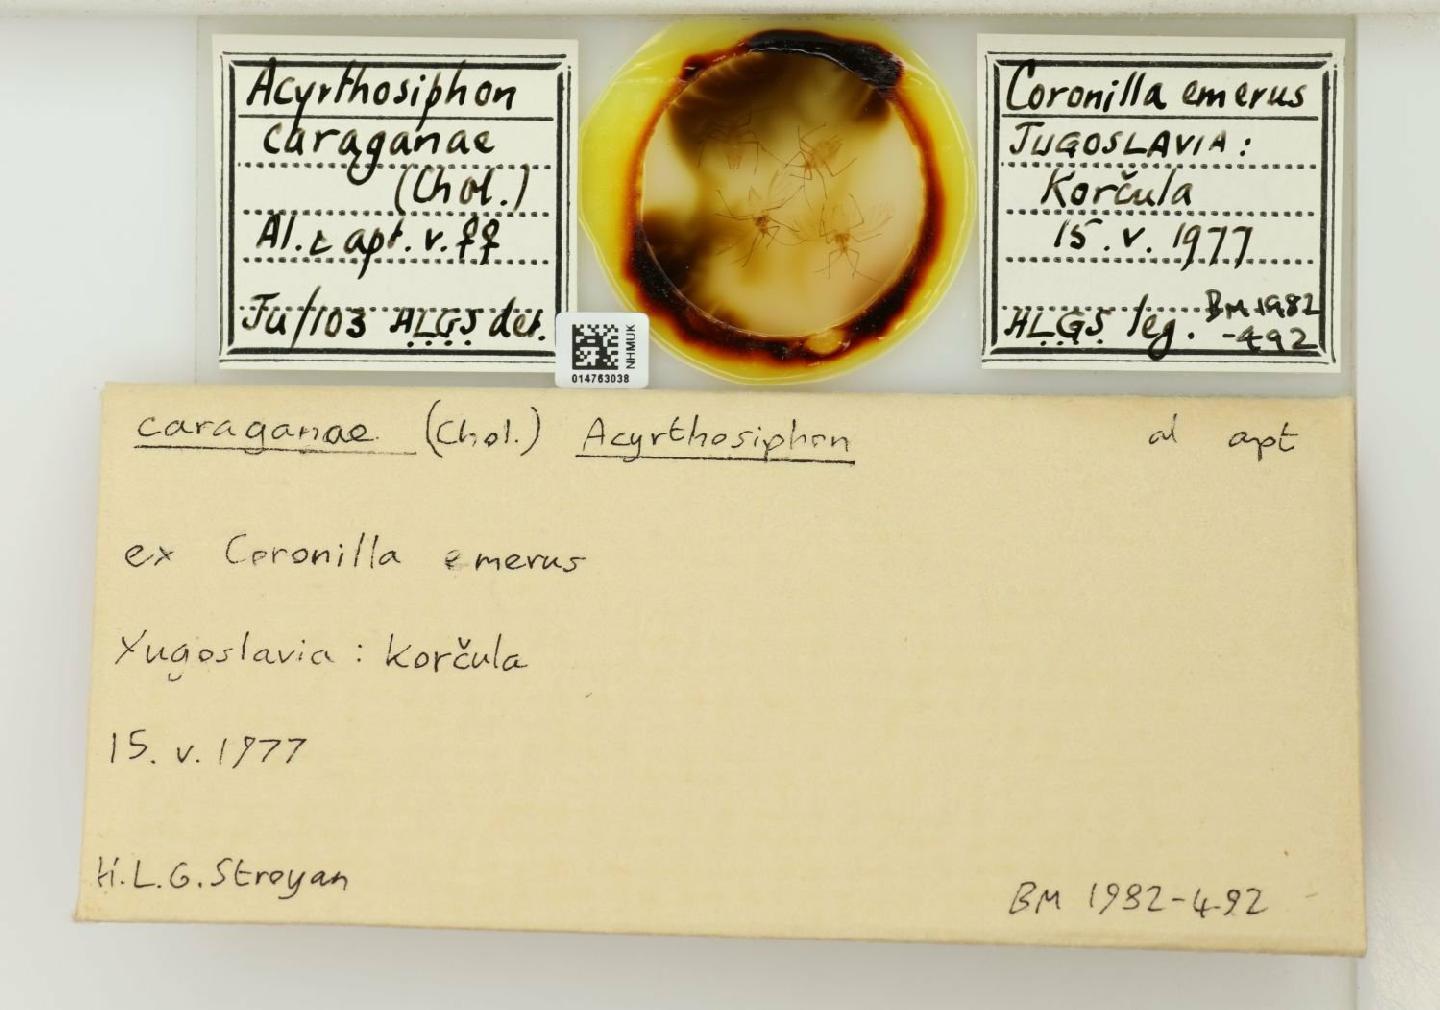 Acyrthosiphon
caraganae
(Chol.)
Al. c apt. v. ff
Ju/103 HLGS det.
NHMUK
014763038
Coronilla emerus
JUGOSLAVIA:
Korčula
15.v. 1977
BM 1982
HLGS leg. -492
caraganae (Chol.) Acyrthosiphon al apt
ex Coronilla emerus
Yugoslavia: Korčula
15. v. 1977
H.L.G. Stroyan
BM 1982-492